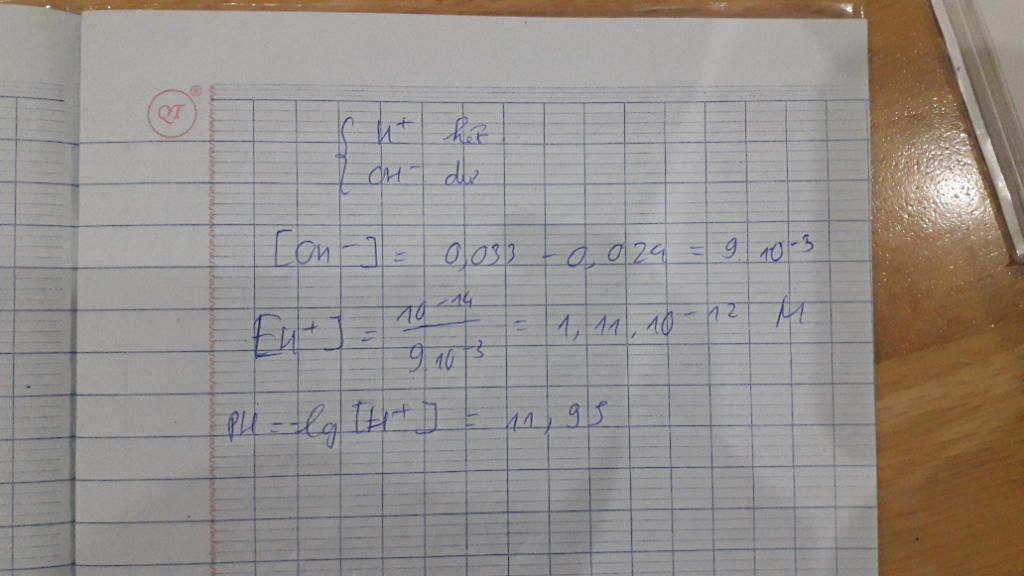 QT ®
{ H⁺ hết
OH⁻ dư
[OH⁻] = 0,033 - 0,024 = 9 10⁻³
[H⁺] = 10⁻¹⁴ / 9 10⁻³ = 1,11.10⁻¹² M
PH = -lg [H⁺] = 11,95